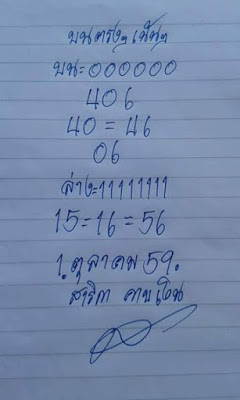 บนตรงๆเน้นๆ
บน=000000
406
40=46
06
ล่าง=11111111
15=16=56
1.ตุลาคม59.
สาริกา คาบเงิน